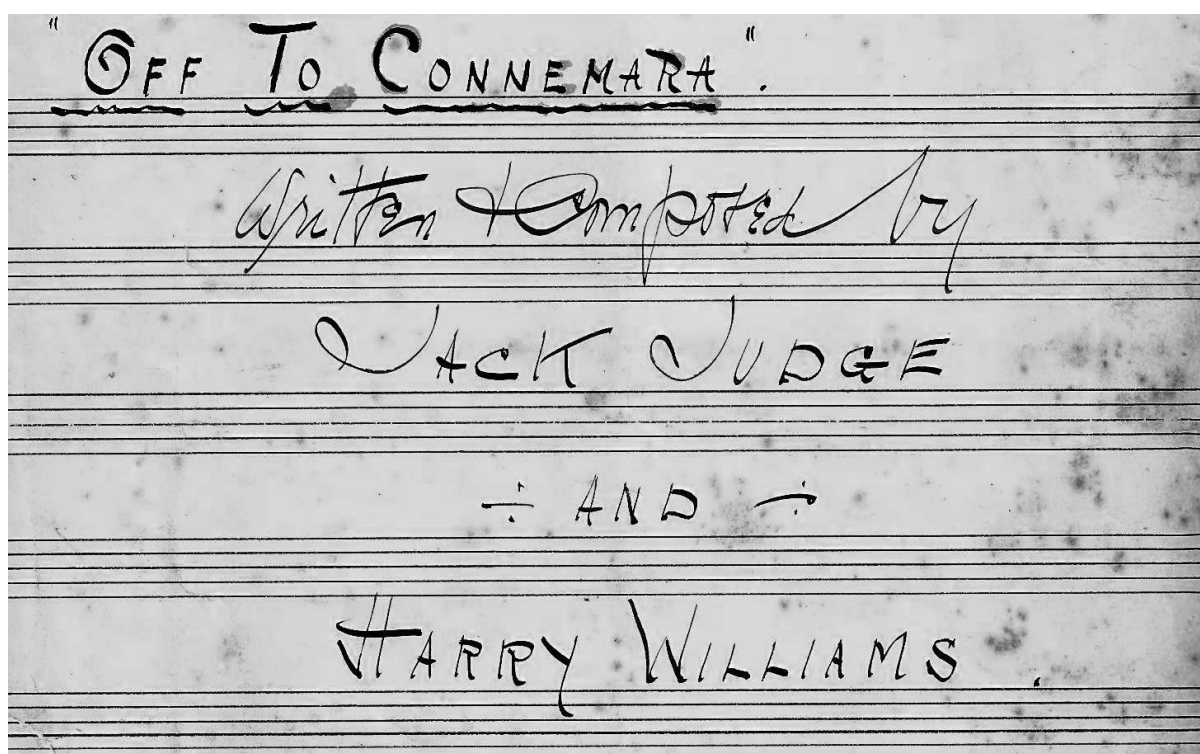 "OFF TO CONNEMARA".
Written & Composed by
JACK JUDGE
÷ AND ÷
HARRY WILLIAMS.